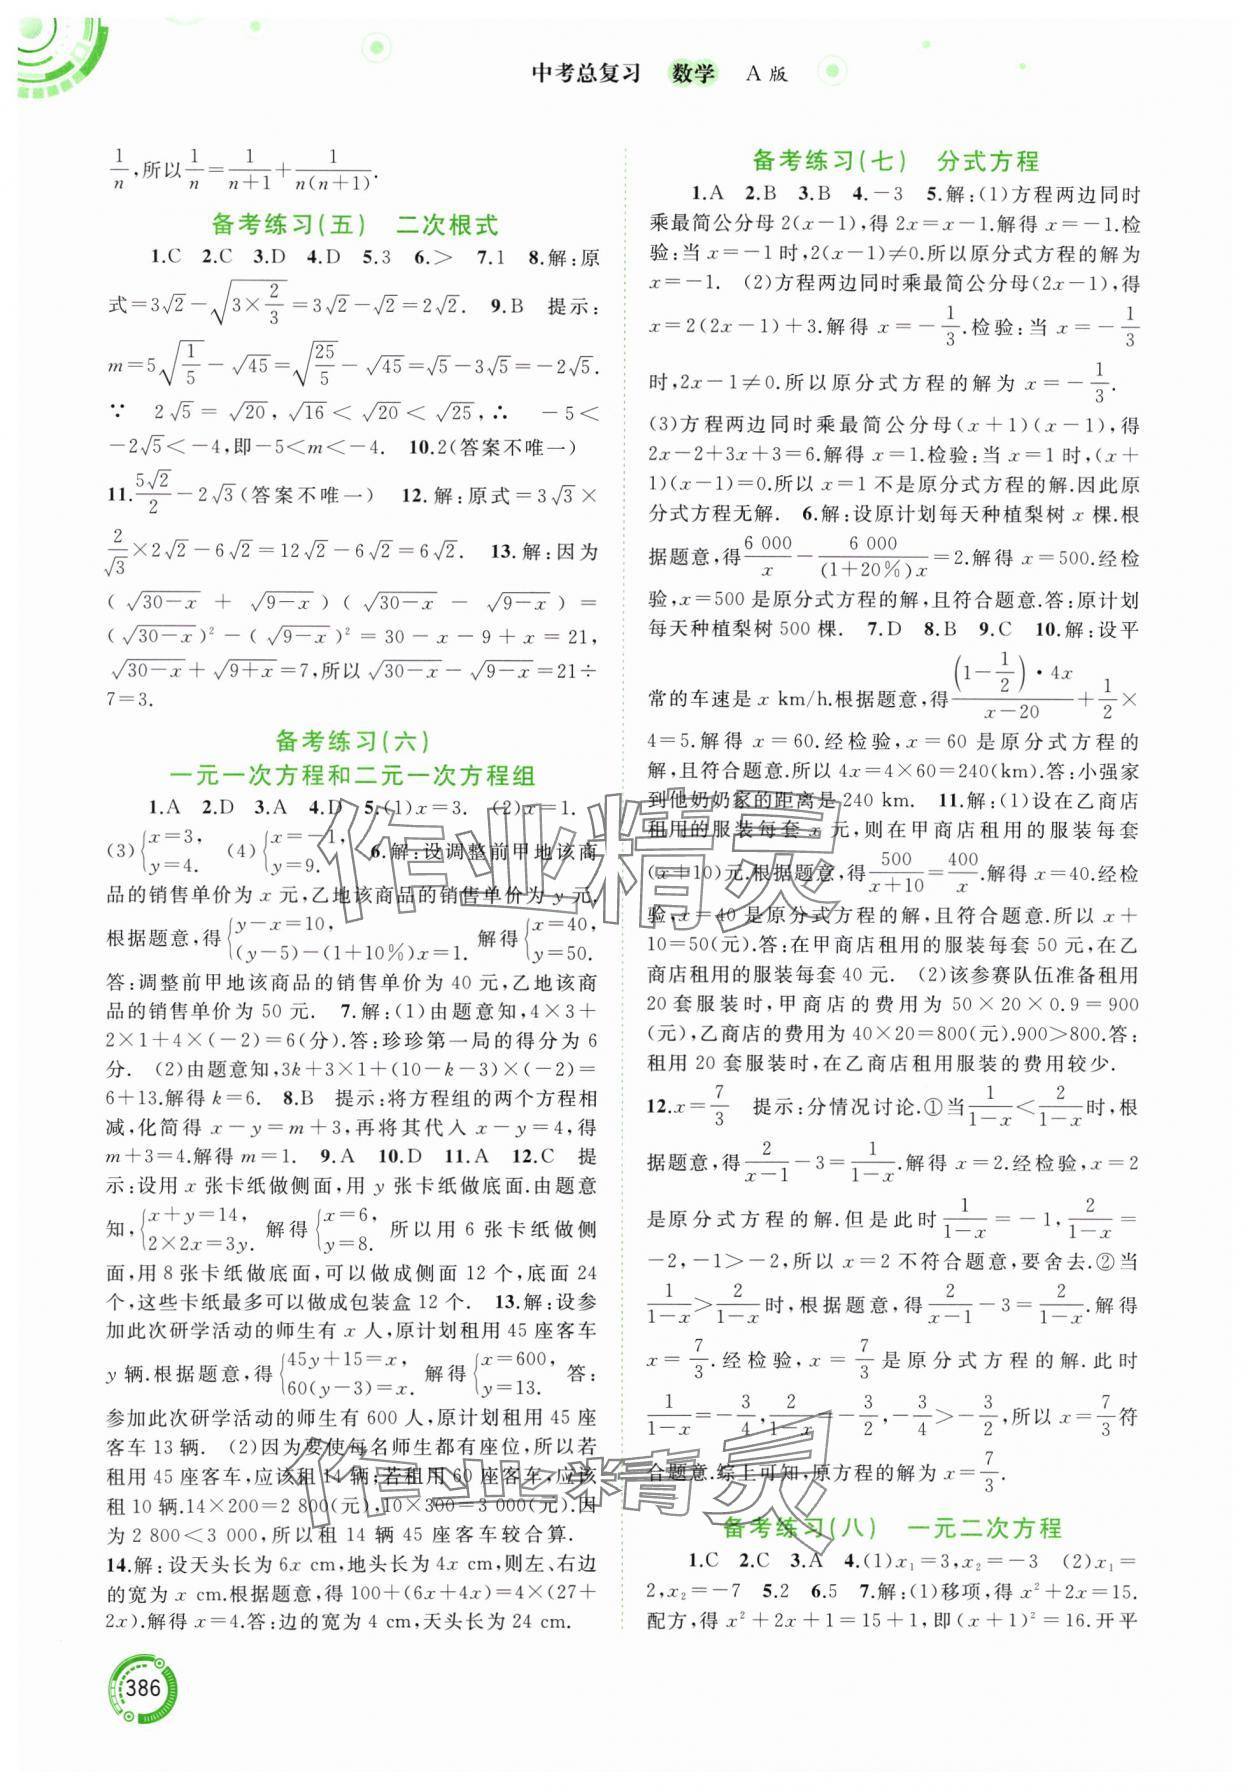 中考总复习 数学 A版
1/n,所以1/n=1/(n+1)+1/(n(n+1)).
备考练习(五) 二次根式
1.C 2.C 3.D 4.D 5.3 6.> 7.1 8.解:原
式=3√2-√(3×2/3)=3√2-√2=2√2. 9.B 提示:
m=5√(1/5)-√45=√(25/5)-√45=√5-3√5=-2√5.
∵ 2√5=√20,√16<√20<√25,∴ -5<
-2√5<-4,即-5<m<-4. 10.2(答案不唯一)
11.5√2/2-2√3(答案不唯一) 12.解:原式=3√3×
2/√3×2√2-6√2=12√2-6√2=6√2. 13.解:因为
(√(30-x)+√(9-x))(√(30-x)-√(9-x))=
(√(30-x))²-(√(9-x))²=30-x-9+x=21,
√(30-x)+√(9+x)=7,所以√(30-x)-√(9-x)=21÷
7=3.
备考练习(六)
一元一次方程和二元一次方程组
1.A 2.D 3.A 4.D 5.(1)x=3. (2)x=1.
(3){x=3, y=4. (4){x=-1, y=9. 6.解:设调整前甲地该商
品的销售单价为 x 元,乙地该商品的销售单价为 y 元.
根据题意,得{y-x=10, (y-5)-(1+10%)x=1. 解得{x=40, y=50.
答:调整前甲地该商品的销售单价为 40 元,乙地该商
品的销售单价为 50 元. 7.解:(1)由题意知,4×3+
2×1+4×(-2)=6(分).答:珍珍第一局的得分为 6
分. (2)由题意知,3k+3×1+(10-k-3)×(-2)=
6+13.解得 k=6. 8.B 提示:将方程组的两个方程相
减,化简得 x-y=m+3,再将其代入 x-y=4,得
m+3=4.解得 m=1. 9.A 10.D 11.A 12.C 提
示:设用 x 张卡纸做侧面,用 y 张卡纸做底面.由题意
知,{x+y=14, 2×2x=3y. 解得{x=6, y=8. 所以用 6 张卡纸做侧
面,用 8 张卡纸做底面,可以做成侧面 12 个,底面 24
个,这些卡纸最多可以做成包装盒 12 个. 13.解:设参
加此次研学活动的师生有 x 人,原计划租用 45 座客车
y 辆.根据题意,得{45y+15=x, 60(y-3)=x. 解得{x=600, y=13. 答:
参加此次研学活动的师生有 600 人,原计划租用 45 座
客车 13 辆. (2)因为要使每名师生都有座位,所以若
租用 45 座客车,应该租 14 辆;若租用 60 座客车,应该
租 10 辆.14×200=2 800(元),10×300=3 000(元).因
为 2 800<3 000,所以租 14 辆 45 座客车较合算.
14.解:设天头长为 6x cm,地头长为 4x cm,则左、右边
的宽为 x cm.根据题意,得 100+(6x+4x)=4×(27+
2x).解得 x=4.答:边的宽为 4 cm,天头长为 24 cm.
备考练习(七) 分式方程
1.A 2.B 3.B 4.-3 5.解:(1)方程两边同时
乘最简公分母 2(x-1),得 2x=x-1.解得 x=-1.检
验:当 x=-1 时,2(x-1)≠0.所以原分式方程的解为
x=-1. (2)方程两边同时乘最简公分母(2x-1),得
x=2(2x-1)+3.解得 x=-1/3.检验:当 x=-1/3
时,2x-1≠0.所以原分式方程的解为 x=-1/3.
(3)方程两边同时乘最简公分母(x+1)(x-1),得
2x-2+3x+3=6.解得 x=1.检验:当 x=1 时,(x+
1)(x-1)=0.所以 x=1 不是原分式方程的解.因此原
分式方程无解. 6.解:设原计划每天种植梨树 x 棵.根
据题意,得6 000/x-6 000/((1+20%)x)=2.解得 x=500.经检
验,x=500 是原分式方程的解,且符合题意.答:原计划
每天种植梨树 500 棵. 7.D 8.B 9.C 10.解:设平
常的车速是 x km/h.根据题意,得((1-1/2)·4x)/(x-20)+1/2×
4=5.解得 x=60.经检验,x=60 是原分式方程的
解,且符合题意.所以 4x=4×60=240(km).答:小强家
到他奶奶家的距离是 240 km. 11.解:(1)设在乙商店
租用的服装每套 x 元,则在甲商店租用的服装每套
(x+10)元.根据题意,得500/(x+10)=400/x.解得 x=40.经检
验,x=40 是原分式方程的解,且符合题意.所以 x+
10=50(元).答:在甲商店租用的服装每套 50 元,在乙
商店租用的服装每套 40 元. (2)该参赛队伍准备租用
20 套服装时,甲商店的费用为 50×20×0.9=900
(元),乙商店的费用为 40×20=800(元).900>800.答:
租用 20 套服装时,在乙商店租用服装的费用较少.
12.x=7/3 提示:分情况讨论.①当1/(1-x)<2/(1-x)时,根
据题意,得2/(x-1)-3=1/(1-x).解得 x=2.经检验,x=2
是原分式方程的解.但是此时1/(1-x)=-1,2/(1-x)=
-2,-1>-2,所以 x=2 不符合题意,要舍去.②当
1/(1-x)>2/(1-x)时,根据题意,得2/(x-1)-3=2/(1-x).解得
x=7/3.经检验,x=7/3是原分式方程的解.此时
1/(1-x)=-3/4,2/(1-x)=-3/2,-3/4>-3/2,所以 x=7/3符
合题意.综上可知,原方程的解为 x=7/3.
备考练习(八) 一元二次方程
1.C 2.C 3.A 4.(1)x₁=3,x₂=-3 (2)x₁=
2,x₂=-7 5.2 6.5 7.解:(1)移项,得 x²+2x=15.
配方,得 x²+2x+1=15+1,即(x+1)²=16.开平
386
作业精灵
作业精灵